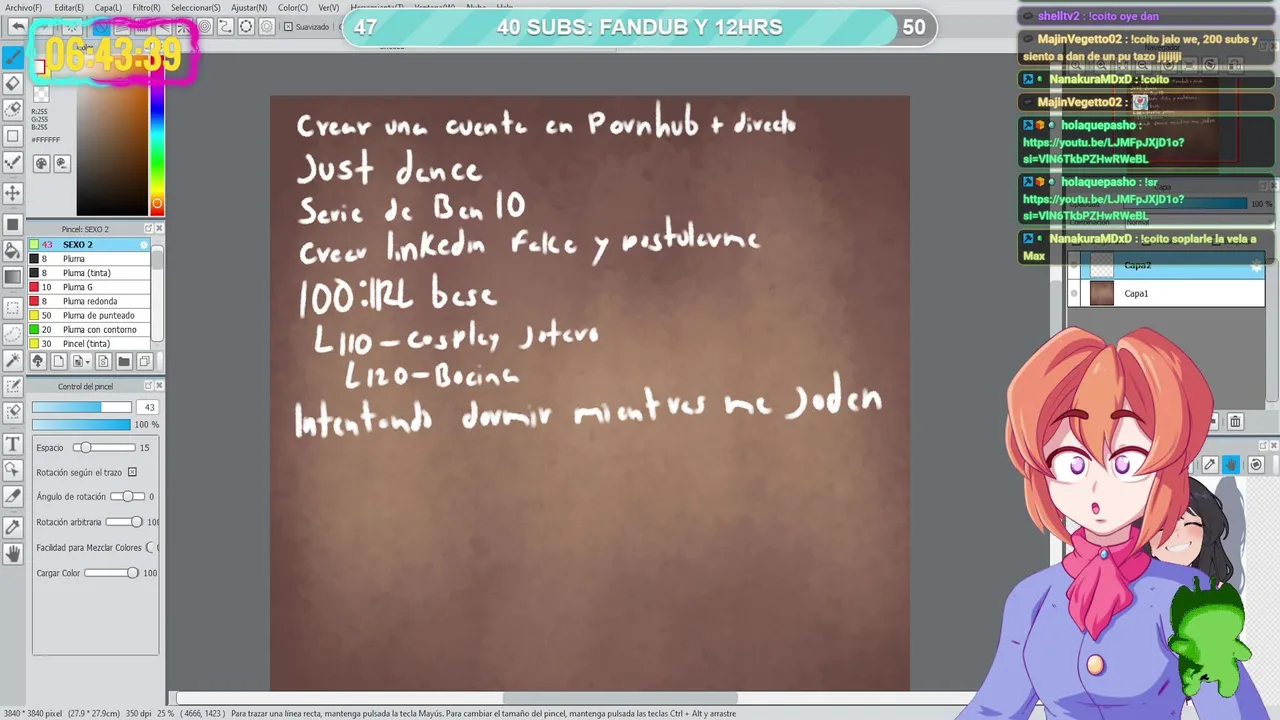 Archivo(F) Editar(E) Capa(L) Filtro(R) Seleccionar(S) Ajustar(N) Color(C) Ver(V)
Suavizado
06:43:39
47 40 SUBS: FANDUB Y 12HRS 50
R:255
G:255
B:255
#FFFFFF
Pincel: SEXO 2
43 SEXO 2
8 Pluma
8 Pluma (tinta)
10 Pluma G
8 Pluma redonda
50 Pluma de punteado
20 Pluma con contorno
30 Pincel (tinta)
Control del pincel
43
100 %
Espacio 15
Rotación según el trazo
Ángulo de rotación 0
Rotación arbitraria 100
Facilidad para Mezclar Colores
Cargar Color 100
Crear una cuenta en Pornhub + directo
Just dance
Serie de Ben 10
Crear linkedin fake y postularme
100:IRL base
L110-Cosplay Jotaro
L120-Bocina
Intentando dormir mientras me joden
shelltv2 : !coito oye dan
MajinVegetto02 : !coito jalo we, 200 subs y
siento a dan de un pu tazo jijijiji
NanakuraMDxD : !coito
MajinVegetto02 :
holaquepasho :
https://youtu.be/LJMFpJXjD1o?
si=VlN6TkbPZHwRWeBL
holaquepasho : !sr
https://youtu.be/LJMFpJXjD1o?
si=VlN6TkbPZHwRWeBL
NanakuraMDxD : !coito soplarle la vela a
Max
Capa
100 %
Capa2
Capa1
3840 * 3840 pixel (27.9 * 27.9cm) 350 dpi 25 % ( 4666, 1423 ) Para trazar una línea recta, mantenga pulsada la tecla Mayús. Para cambiar el tamaño del pincel, mantenga pulsadas las teclas Ctrl + Alt y arrastre